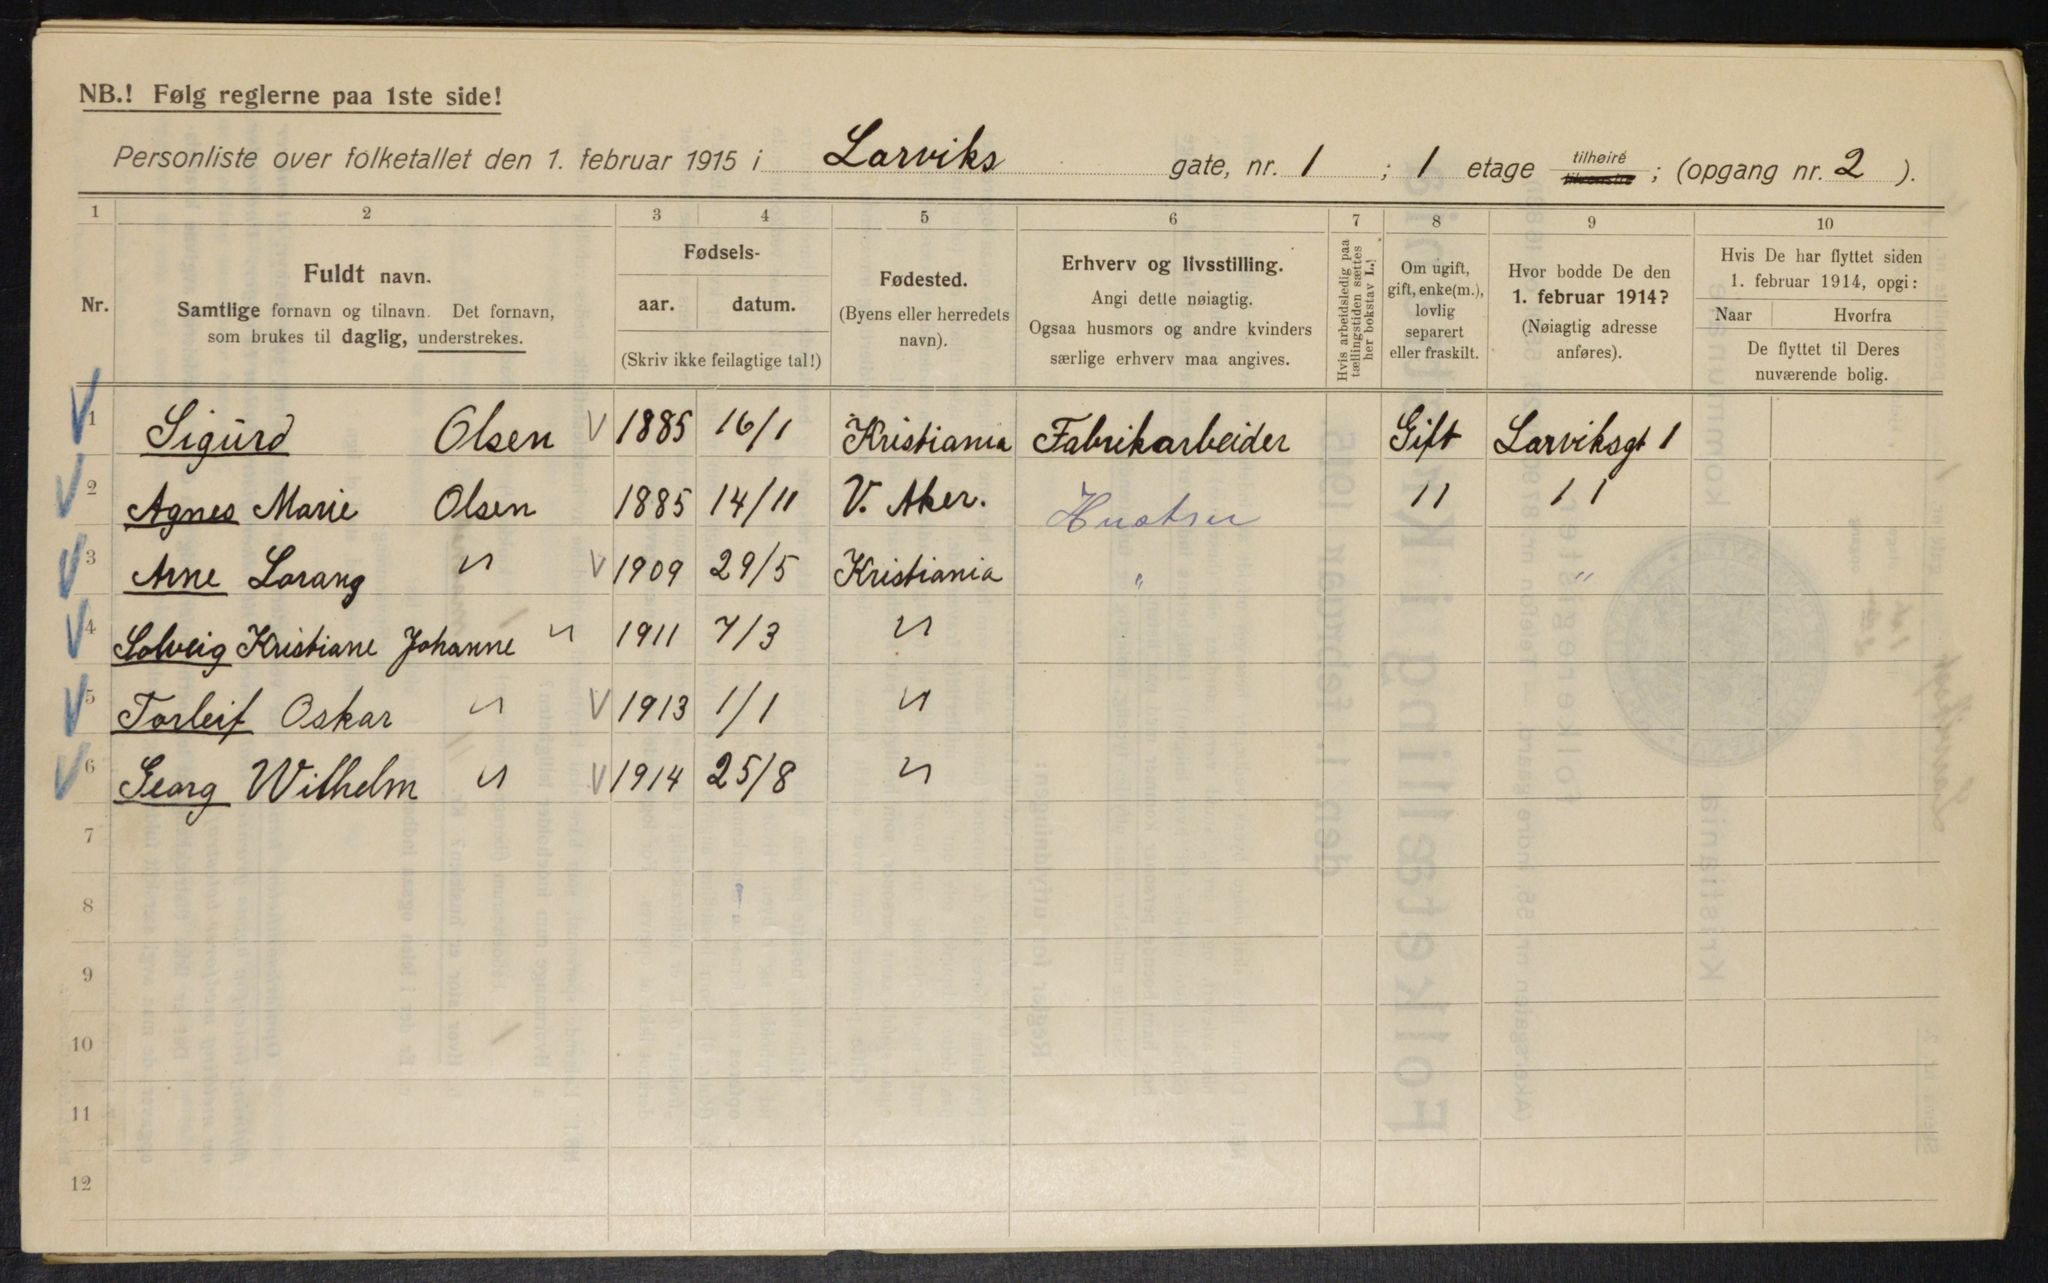 NB.! Følg reglerne paa 1ste side!
Personliste over folketallet den 1. februar 1915 i Larviks gate, nr. 1 ; 1 etage tilhøire tilvenstre ; (opgang nr. 2 ).
1 2 3 4 5 6 7 8 9 10
Nr.
Fuldt navn.
Samtlige fornavn og tilnavn. Det fornavn,
som brukes til daglig, understrekes.
Fødsels-
aar. datum.
(Skriv ikke feilagtige tal!)
Fødested.
(Byens eller herredets
navn).
Erhverv og livsstilling.
Angi dette nøiagtig.
Ogsaa husmors og andre kvinders
særlige erhverv maa angives.
Hvis arbeidsledig paa
tællingstiden sættes
her bokstav L.
Om ugift,
gift, enke(m.),
lovlig
separert
eller fraskilt.
Hvor bodde De den
1. februar 1914?
(Nøiagtig adresse
anføres).
Hvis De har flyttet siden
1. februar 1914, opgi:
Naar Hvorfra
De flyttet til Deres
nuværende bolig.
V 1 Sigurd Olsen V 1885 16/1 Kristiania Fabrikarbeider Gift Larviksgt 1
V 2 Agnes Marie Olsen 1885 14/11 V. Aker. Hustru 11 11
V 3 Arne Lorang " V 1909 29/5 Kristiania " "
V 4 Solveig Kristiane Johanne " 1911 7/3 "
V 5 Torleif Oskar " V 1913 1/1 "
V 6 Georg Wilhelm " V 1914 25/8 "
7
8
9
10
11
12